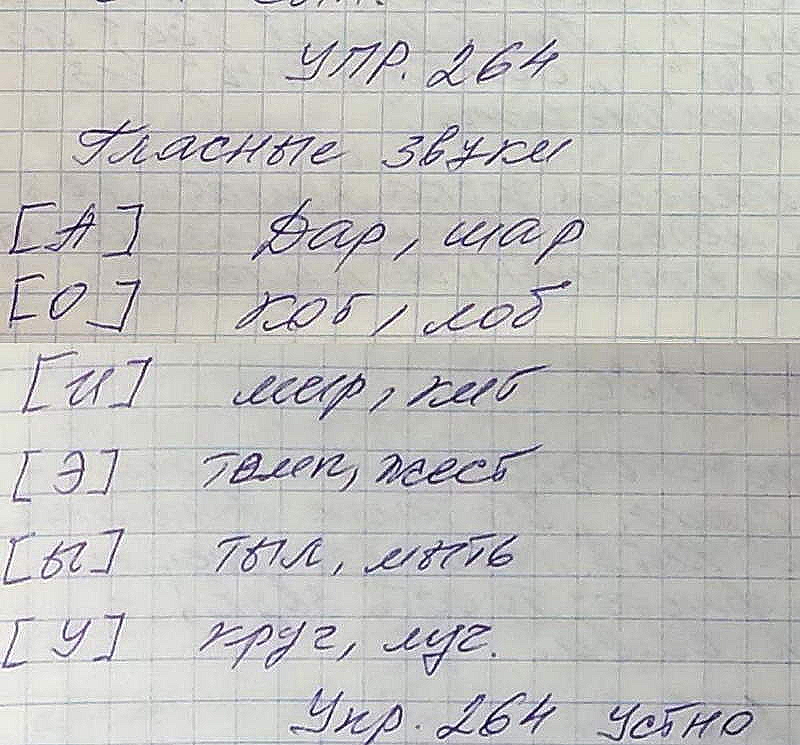 УПР. 264
Гласные звуки
[А] Дар, шар
[О] кот, лоб
[И] мир, кит
[Э] темп, жест
[Ы] тыл, мыть
[У] круг, луг.
Упр. 264 устно